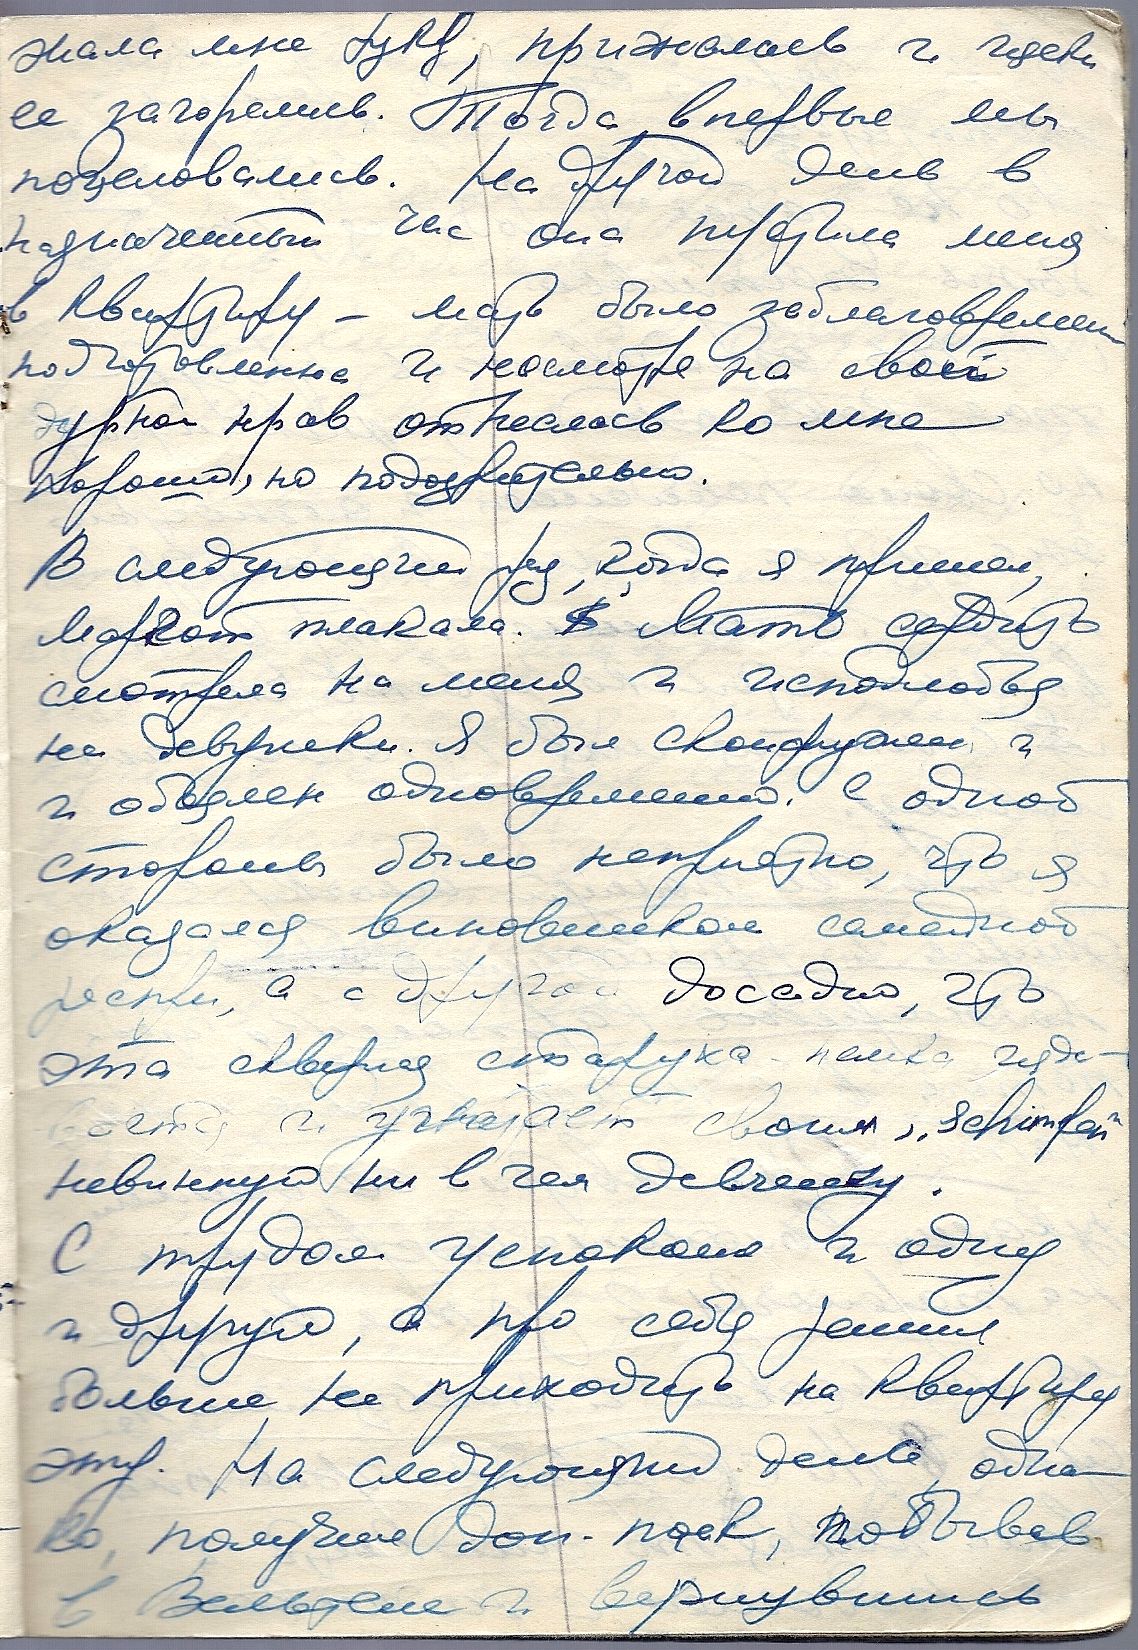 жала мне руку, прижалась и щеки
ее загорелись. Тогда впервые мы
поцеловались. На другой день в
назначенный час она пустила меня
в квартиру – мать была заблаговременно
подготовленна и несмотря на свой
дурной нрав отнеслась ко мне
хорошо, но подозрительно.
В следующий раз, когда я пришел,
Маргот плакала. Мать сердито
смотрела на меня и исподлобья
на девушку. Я был сконфужен и
и обозлен одновременно. С одной
стороны было неприятно, что я
оказался виновником семейной
распри, а с другой досадно, что
эта скверная старуха-немка издевается
и угнетает своим „schimpfen"
невинную ни в чем девченку.
С трудом успокоил и одну
и другую, а про себя решил
больше не приходить на квартиру
эту. На следующий день, одна-
ко, получив доп-паек, побывав
в Вельтене и вернувшись